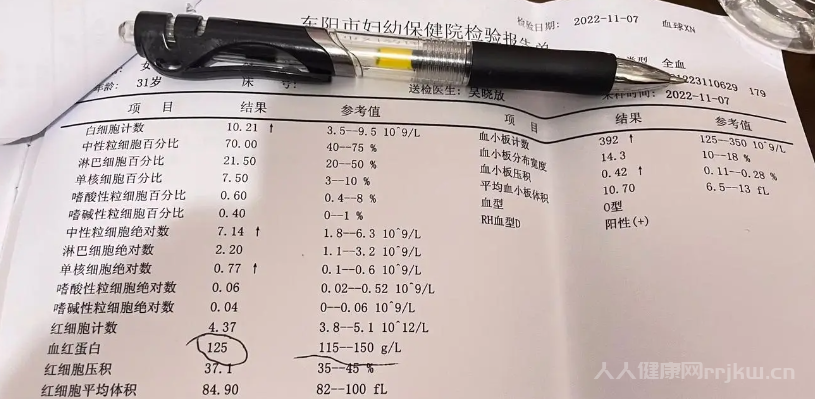 东阳市妇幼保健院检验报告单
检验日期: 2022-11-07 血球XN
女
类型 全血
年龄: 31岁 床 号: 送检医生: 吴晓放
1223110629 179
采样时间: 2022-11-07
项 目 结果 参考值
白细胞计数 10.21 ↑ 3.5--9.5 10^9/L
中性粒细胞百分比 70.00 40--75 %
淋巴细胞百分比 21.50 20--50 %
单核细胞百分比 7.50 3--10 %
嗜酸性粒细胞百分比 0.60 0.4--8 %
嗜碱性粒细胞百分比 0.40 0--1 %
中性粒细胞绝对数 7.14 ↑ 1.8--6.3 10^9/L
淋巴细胞绝对数 2.20 1.1--3.2 10^9/L
单核细胞绝对数 0.77 ↑ 0.1--0.6 10^9/L
嗜酸性粒细胞绝对数 0.06 0.02--0.52 10^9/L
嗜碱性粒细胞绝对数 0.04 0--0.06 10^9/L
红细胞计数 4.37 3.8--5.1 10^12/L
血红蛋白 125 115--150 g/L
红细胞压积 37.1 35--45 %
红细胞平均体积 84.90 82--100 fL
项 目 结果 参考值
血小板计数 392 ↑ 125--350 10^9/L
血小板分布宽度 14.3 10--18 %
血小板压积 0.42 ↑ 0.11--0.28 %
平均血小板体积 10.70 6.5--13 fL
血型 O型
RH血型D 阳性(+)
人人健康网rrjkw.cn